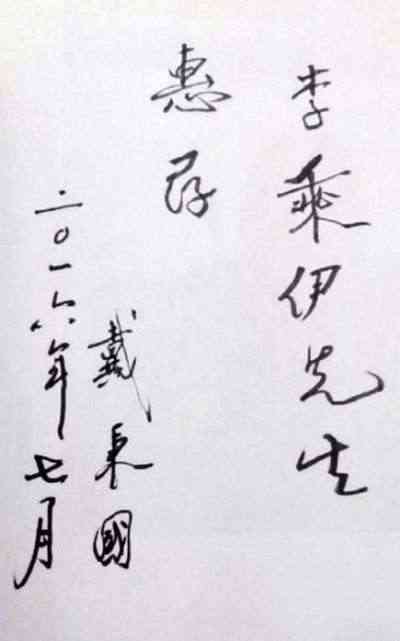 李乘伊先生
惠存
戴秉國
二〇一六年七月